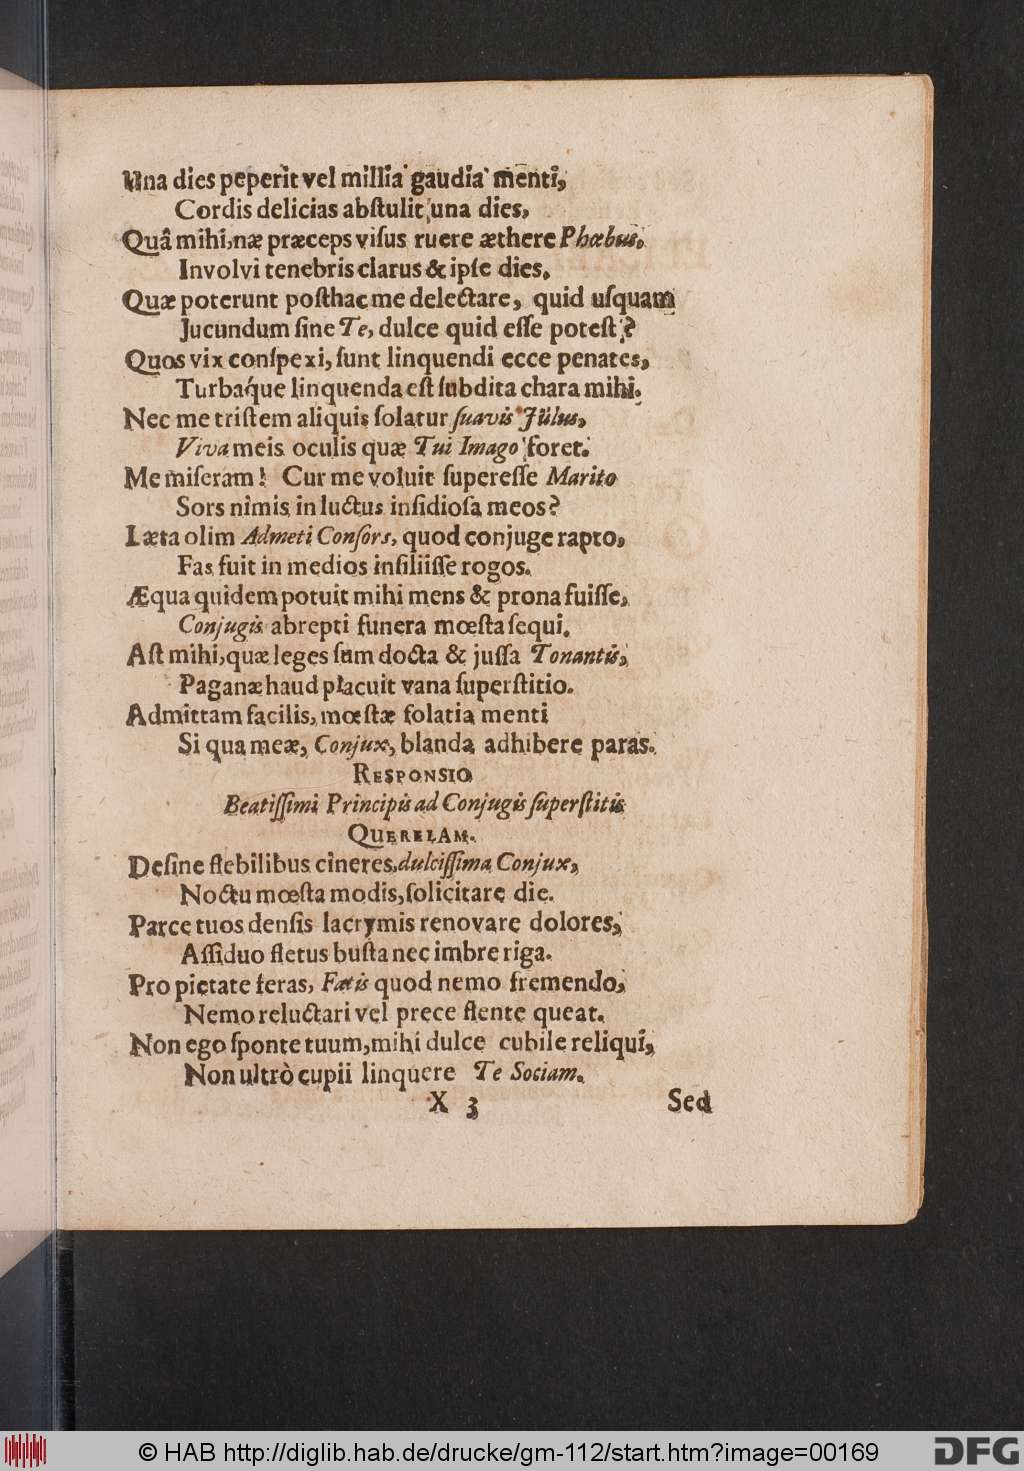 Una dies peperit vel millia gaudia menti,
Cordis delicias abſtulit una dies,
Quâ mihi, næ præceps viſus ruere æthere Phœbus,
Involvi tenebris clarus & ipſe dies.
Quæ poterunt poſthac me delectare, quid uſquam
Jucundum ſine Te, dulce quid eſſe poteſt?
Quos vix conſpexi, ſunt linquendi ecce penates,
Turbaq́ue linquenda eſt ſubdita chara mihi.
Nec me triſtem aliquis ſolatur ſuavis Jülus,
Viva meis oculis quæ Tui Imago foret.
Me miſeram! Cur me voluit ſupereſſe Marito
Sors nimis in luctus inſidioſa meos?
Læta olim Admeti Conſors, quod conjuge rapto,
Fas fuit in medios inſiliiſſe rogos.
Æqua quidem potuit mihi mens & prona fuiſſe,
Conjugis abrepti funera mœſta ſequi.
Aſt mihi, quæ leges ſum docta & juſſa Tonantis,
Paganæ haud placuit vana ſuperſtitio.
Admittam facilis, mœſtæ ſolatia menti
Si qua meæ, Conjux, blanda adhibere paras.
RESPONSIO
Beatiſſimi Principis ad Conjugis ſuperſtitis
QUERELAM.
Deſine flebilibus cineres, dulciſſima Conjux,
Noctu mœſta modis, ſolicitare die.
Parce tuos denſis lacrymis renovare dolores,
Aſſiduo fletus buſta nec imbre riga.
Pro pietate feras, Fatis quod nemo fremendo,
Nemo reluctari vel prece flente queat.
Non ego ſponte tuum, mihi dulce cubile reliqui,
Non ultrò cupii linquere Te Sociam.
X 3 Sed
© HAB http://diglib.hab.de/drucke/gm-112/start.htm?image=00169
DFG